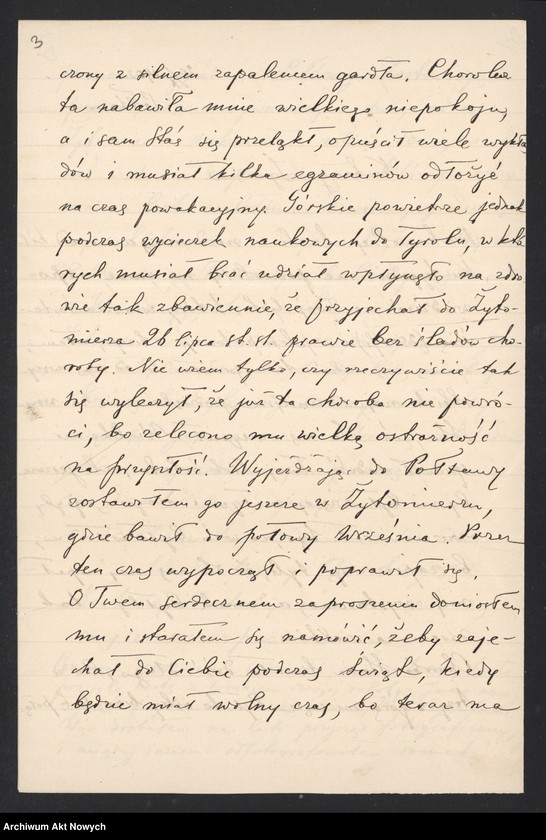 3
czony z silnem zapaleniem gardła. Choroba
ta nabawiła mnie wielkiego niepokoju,
a i sam Staś się przeląkł, opuścił wiele wykła
dów i musiał kilka egzaminów odłożyć
na czas powakacyjny. Górskie powietrze jednak
podczas wycieczek naukowych do Tyrolu, w któ
rych musiał brać udział wpłynęło na zdro
wie tak zbawiennie, że przyjechał do Żyto-
mierza 26 lipca st. st. prawie bez śladów cho-
roby. Nie wiem tylko, czy rzeczywiście tak
się wyleczył, że już ta choroba nie powró-
ci, bo zalecono mu wielką ostrożność
na przyszłość. Wyjeżdżając do Połtawy
zostawiłem go jeszcze w Żytomierzu,
gdzie bawił do połowy Września. Przez
ten czas wypoczął i poprawił się.
O Twem serdecznem zaproszeniu doniosłem
mu i starałem się namówić, żeby zaje-
chał do Ciebie podczas Świąt, kiedy
będzie miał wolny czas, bo teraz ma
Archiwum Akt Nowych